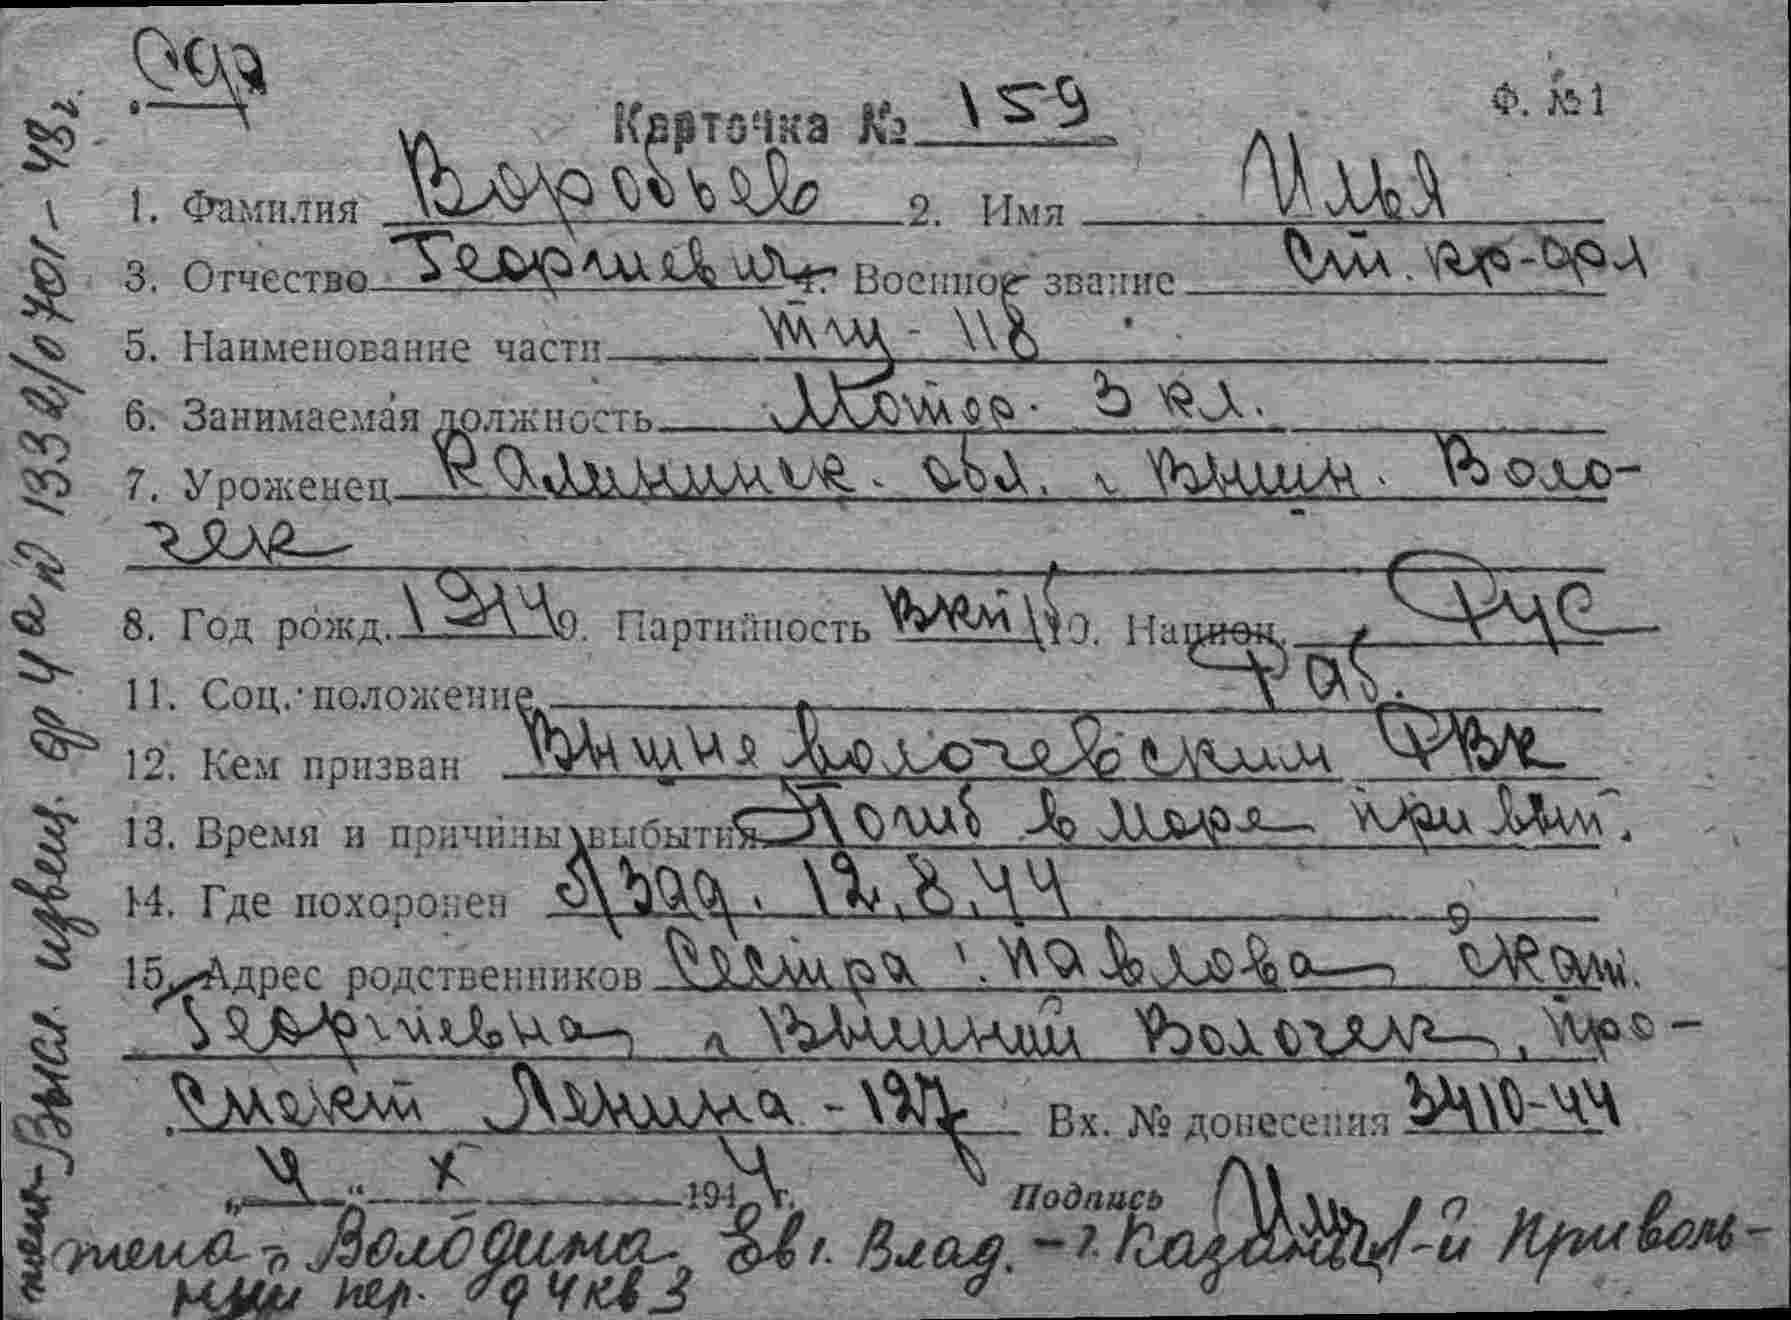 Карточка № 159
Ф. №1
1. Фамилия Воробьев 2. Имя Илья
3. Отчество Георгиевич 4. Военное звание Ст. кр-фл
5. Наименование части тщ-118
6. Занимаемая должность Мотор. 3 кл.
7. Уроженец Калининск. обл. г Вышн. Воло-
чек
8. Год рожд. 1914 9. Партийность ВКП/б 10. Национ. Рус
11. Соц. положение Раб.
12. Кем призван Вышневолочевским РВК
13. Время и причины выбытия Погиб в море при вып.
14. Где похоронен б/зад. 12.8.44
15. Адрес родственников Сестра: Павлова Екат.
Георгиевна г Вышний Волочек, про-
спект Ленина-127 Вх. № донесения 3410-44
„4“ X 1944 г. Подпись
жена - Володина Ев г. Влад. - г. Казань 1-й Приволь-
ный пер. д 4 кв 3
жене Высл. извещ.